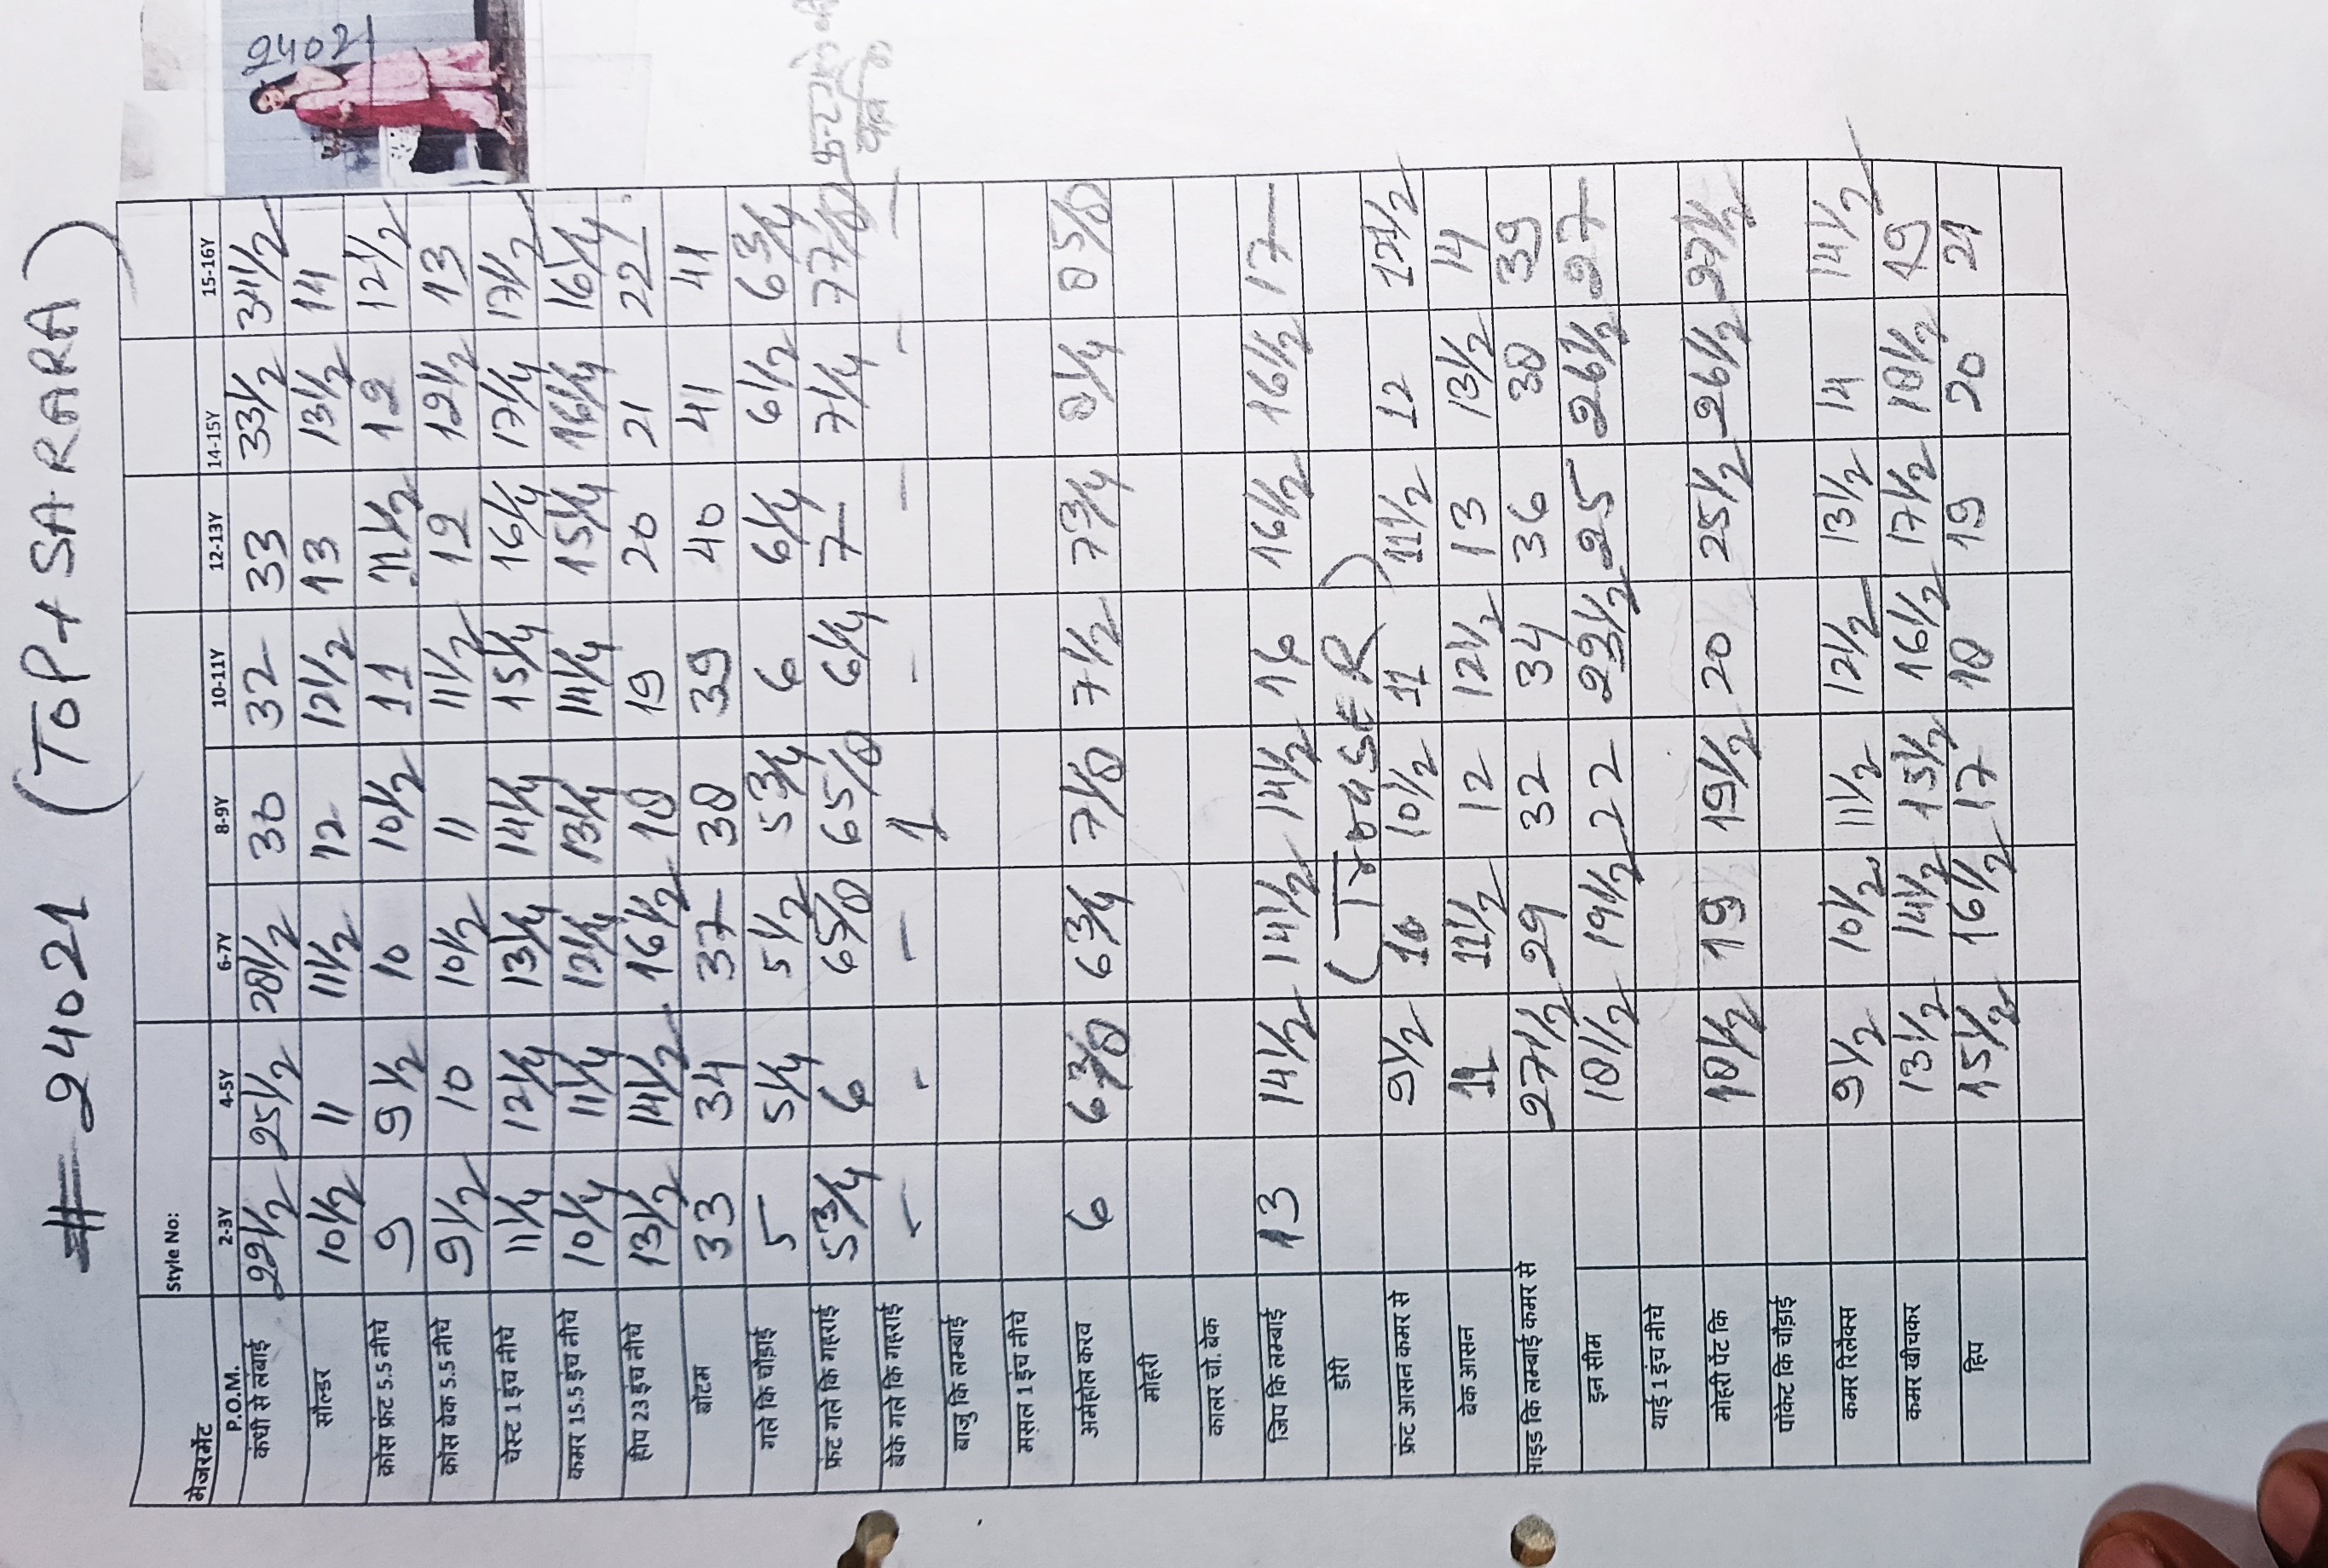 # 24021 (TOP + SARARA)
24021
मेजरमेंट Style No:
P.O.M. 2-3Y 4-5Y 6-7Y 8-9Y 10-11Y 12-13Y 14-15Y 15-16Y
कंधी से लंबाई 22 1/2 25 1/2 28 1/2 30 32 33 33 1/2 34 1/2
सौल्डर 10 1/2 11 11 1/2 12 12 1/2 13 13 1/2 14
क्रोंस फ्रंट 5.5 नीचे 9 9 1/2 10 10 1/2 11 11 1/2 12 12 1/2
क्रोंस बेक 5.5 नीचे 9 1/2 10 10 1/2 11 11 1/2 12 12 1/2 13
चेस्ट 1 इंच नीचे 11 1/4 12 1/4 13 1/4 14 1/4 15 1/4 16 1/4 17 1/4 17 1/2
कमर 15.5 इंच नीचे 10 1/4 11 1/4 12 1/4 13 1/4 14 1/4 15 1/4 16 1/4 16 1/4
हीप 23 इंच नीचे 13 1/2 14 1/2 16 1/2 18 19 20 21 22
बोटम 33 34 37 38 39 40 41 41
गले कि चौड़ाई 5 5 1/4 5 1/2 5 3/4 6 6 1/4 6 1/2 6 3/4
फ्रंट गले कि गहराई 5 3/4 6 6 5/8 6 5/8 6 1/4 7 7 1/4 7 7/8
बेके गले कि गहराई - - - 1 - - - -
बाजु कि लम्बाई
मसल 1 इंच नीचे
अर्महोल करव 6 6 3/8 6 3/4 7 1/8 7 1/2 7 3/4 8 1/4 8 5/8
मोहरी
कालर चो. बेक
जिप कि लम्बाई 13 14 1/2 14 1/2 14 1/2 16 16 1/2 16 1/2 17
डोरी (TrouseR)
फ्रंट आसन कमर से 9 1/2 10 10 1/2 11 11 1/2 12 12 1/2
बेक आसन 11 11 1/2 12 12 1/2 13 13 1/2 14
साइड कि लम्बाई कमर से 27 1/2 29 32 34 36 38 39
इन सीम 18 1/2 19 1/2 22 23 1/2 25 26 1/2 27
थाई 1 इंच नीचे
मोहरी पेंट कि 18 1/2 19 19 1/2 20 25 1/2 26 1/2 27 1/2
पॉकेट कि चौड़ाई
कमर रिलैक्स 9 1/2 10 1/2 11 1/2 12 1/2 13 1/2 14 14 1/2
कमर खीचकर 13 1/2 14 1/2 15 1/2 16 1/2 17 1/2 18 1/2 19
हिप 15 1/2 16 1/2 17 18 19 20 21